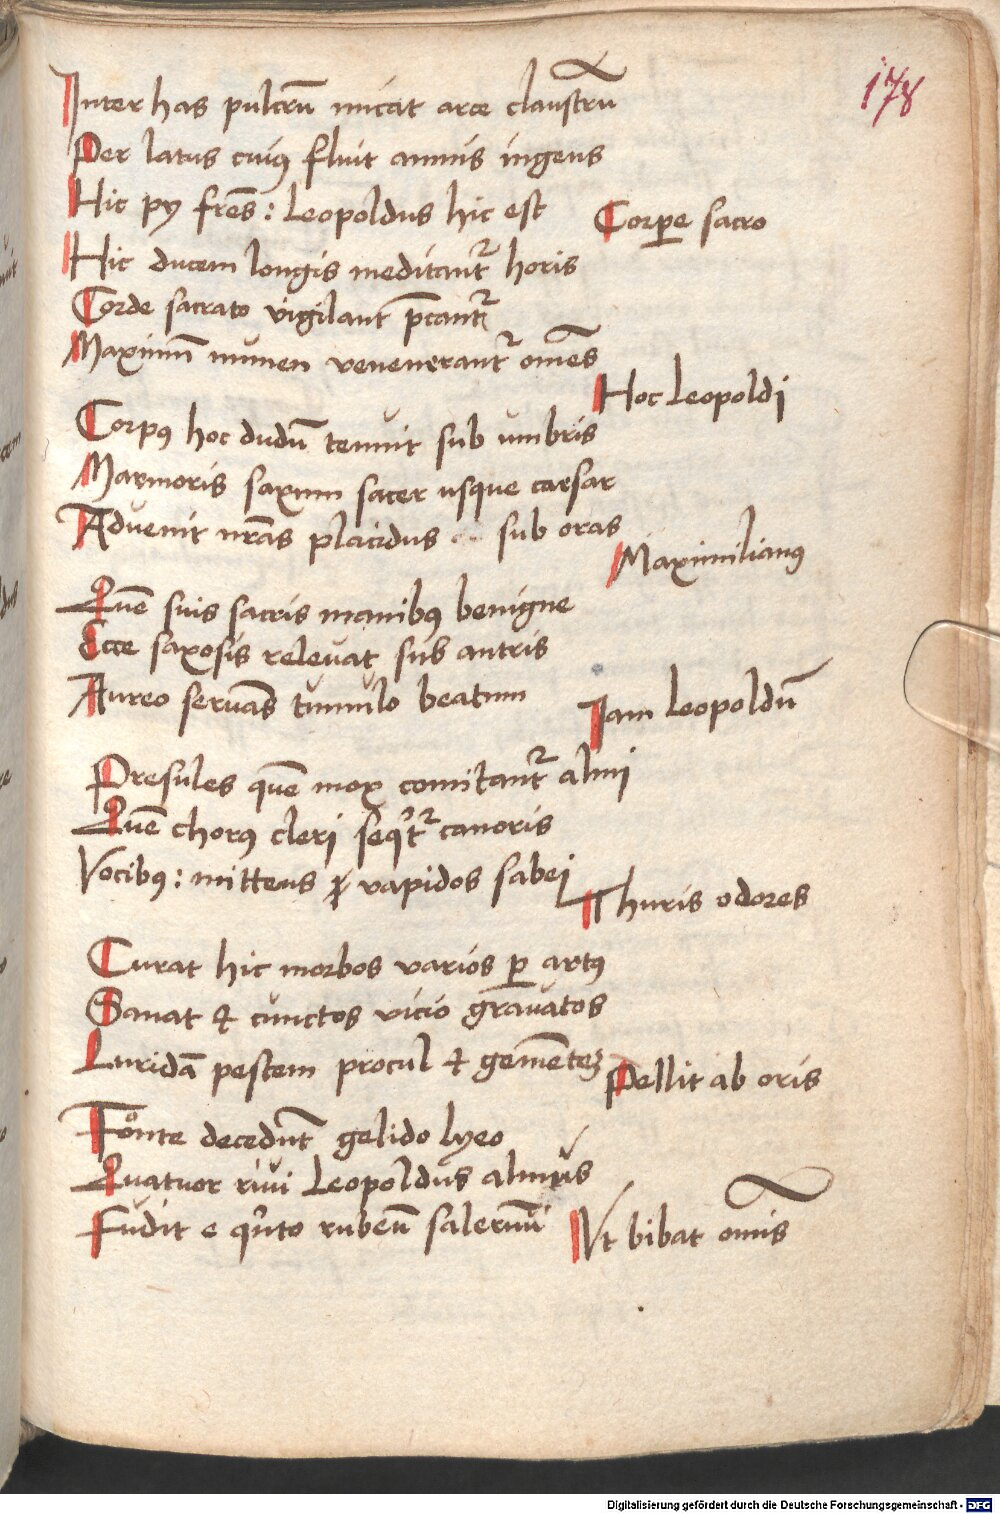 178
Inter has pulcrũ micat arce claustrũ
Per latus cuiꝯ fluit amnis ingens
Hic py fres̃: Leopoldus hic est
Corꝑe sacro
Hic ducem longis meditant᷑ horis
Corde sacrato vigilant p̃cant᷑
Maximũ numen venenerant᷑ om̃es
Hoc Leopoldi
Corpꝯ hoc dudũ tenuit sub umbris
Marmoris saxum sacer usque caesar
Advenit nr̃as placidus sub oras
Maximilianꝯ
Quẽ suis sacris manibꝯ benigne
Ecce saxosis relevat sub antris
Aureo servãs tumulo beatum
Iam Leopoldũ
Presules quẽ mox comitant᷑ almi
Quẽ chorꝯ cleri seqt᷑ canoris
Vocibꝯ: mittens vapidos sabei
Thuris odores
Curat hic morbos varios ꝑ artꝯ
Sanat & cunctos vicio gravatos
Luridã pestem procul & gemẽtes
Pellit ab oris
Fonte decedũt gelido lyeo
Quatuor rivi Leopoldus almus
Fudit e qͥnto rubeũ salernũ
Vt bibat om̃is
Digitalisierung gefördert durch die Deutsche Forschungsgemeinschaft - DFG